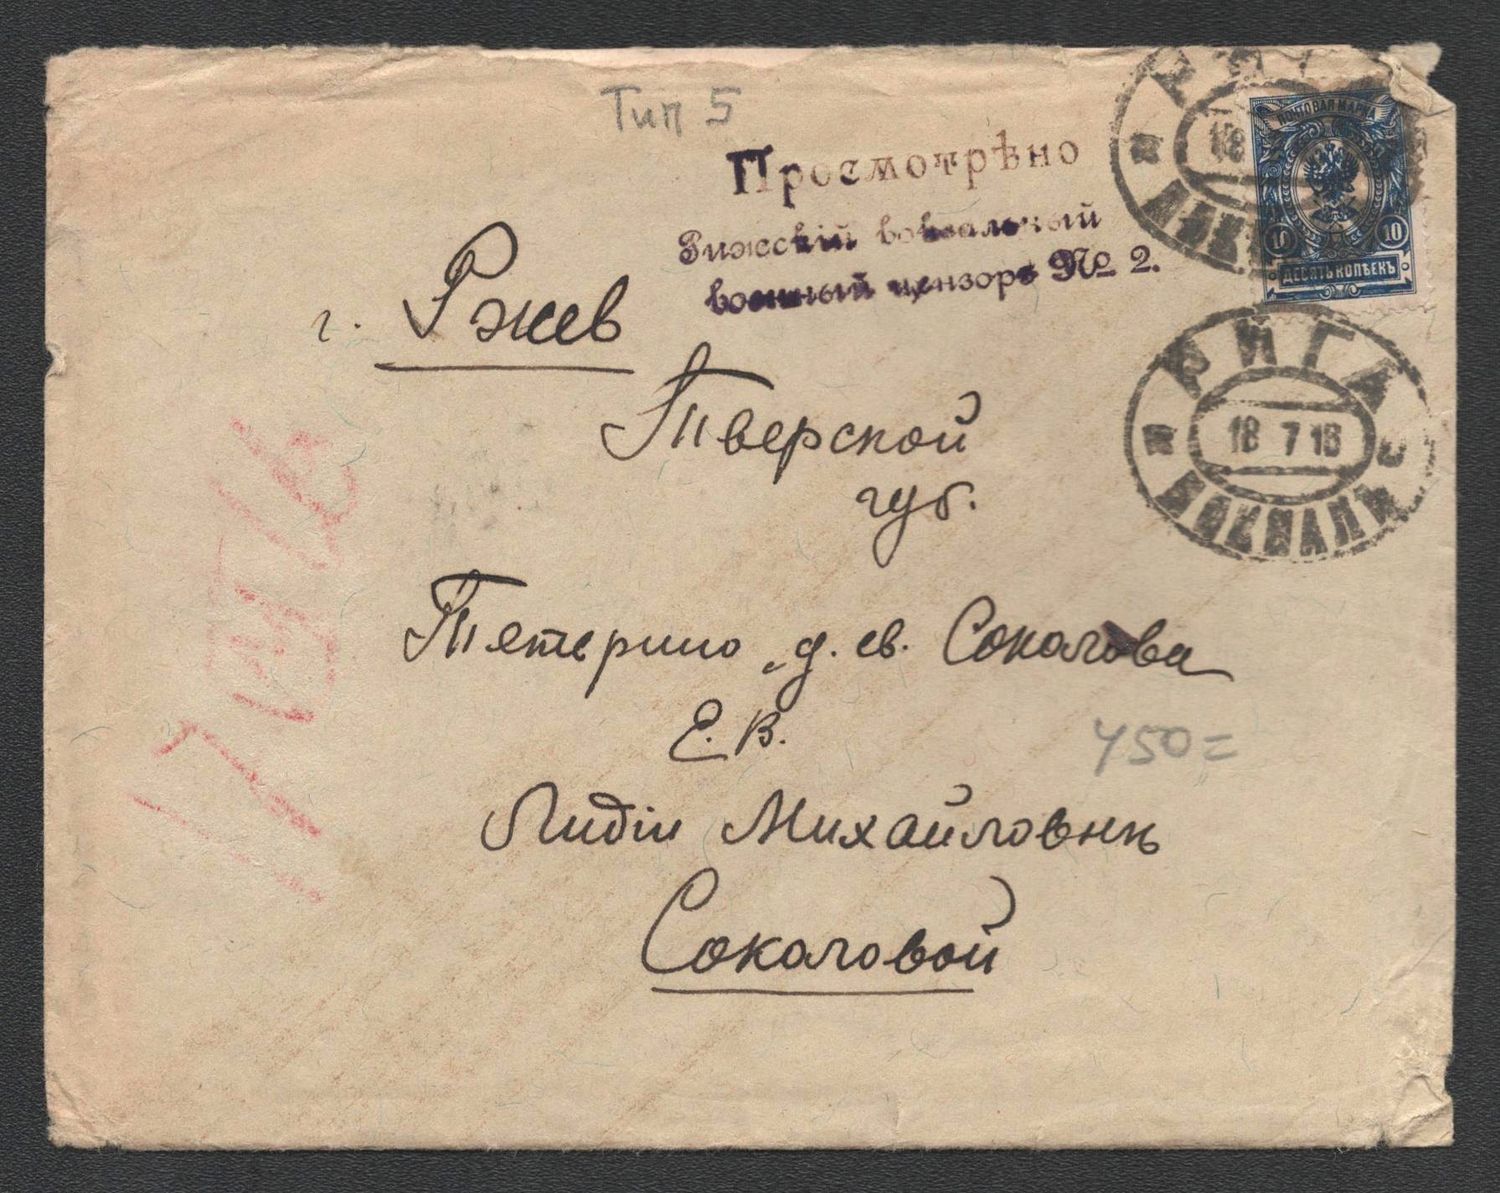 Тип 5
Просмотрѣно
Рижскій вокзальный
военный цензоръ № 2.
ПОЧТОВАЯ МАРКА
10 10
ДЕСЯТЬ КОПѢЕКЪ
РИГА
18 7 16
ВОКЗАЛЪ
г. Ржев
Тверской
губ.
д. св. Соколова
Е. В.
450=
Лидіи Михайловнѣ
Соколовой